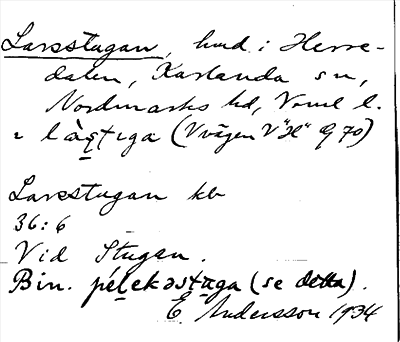 Larsstugan, hmd. i Herre-
dalen, Karlanda sn,
Nordmarks hd, Vrml l.
làs̩t̩ıga (Vvägen V "H" G 70)
Larsstugan kb
36:6
Vid Stugan.
Bin. pélekəstuga (se detta).
E. Andersson 1934